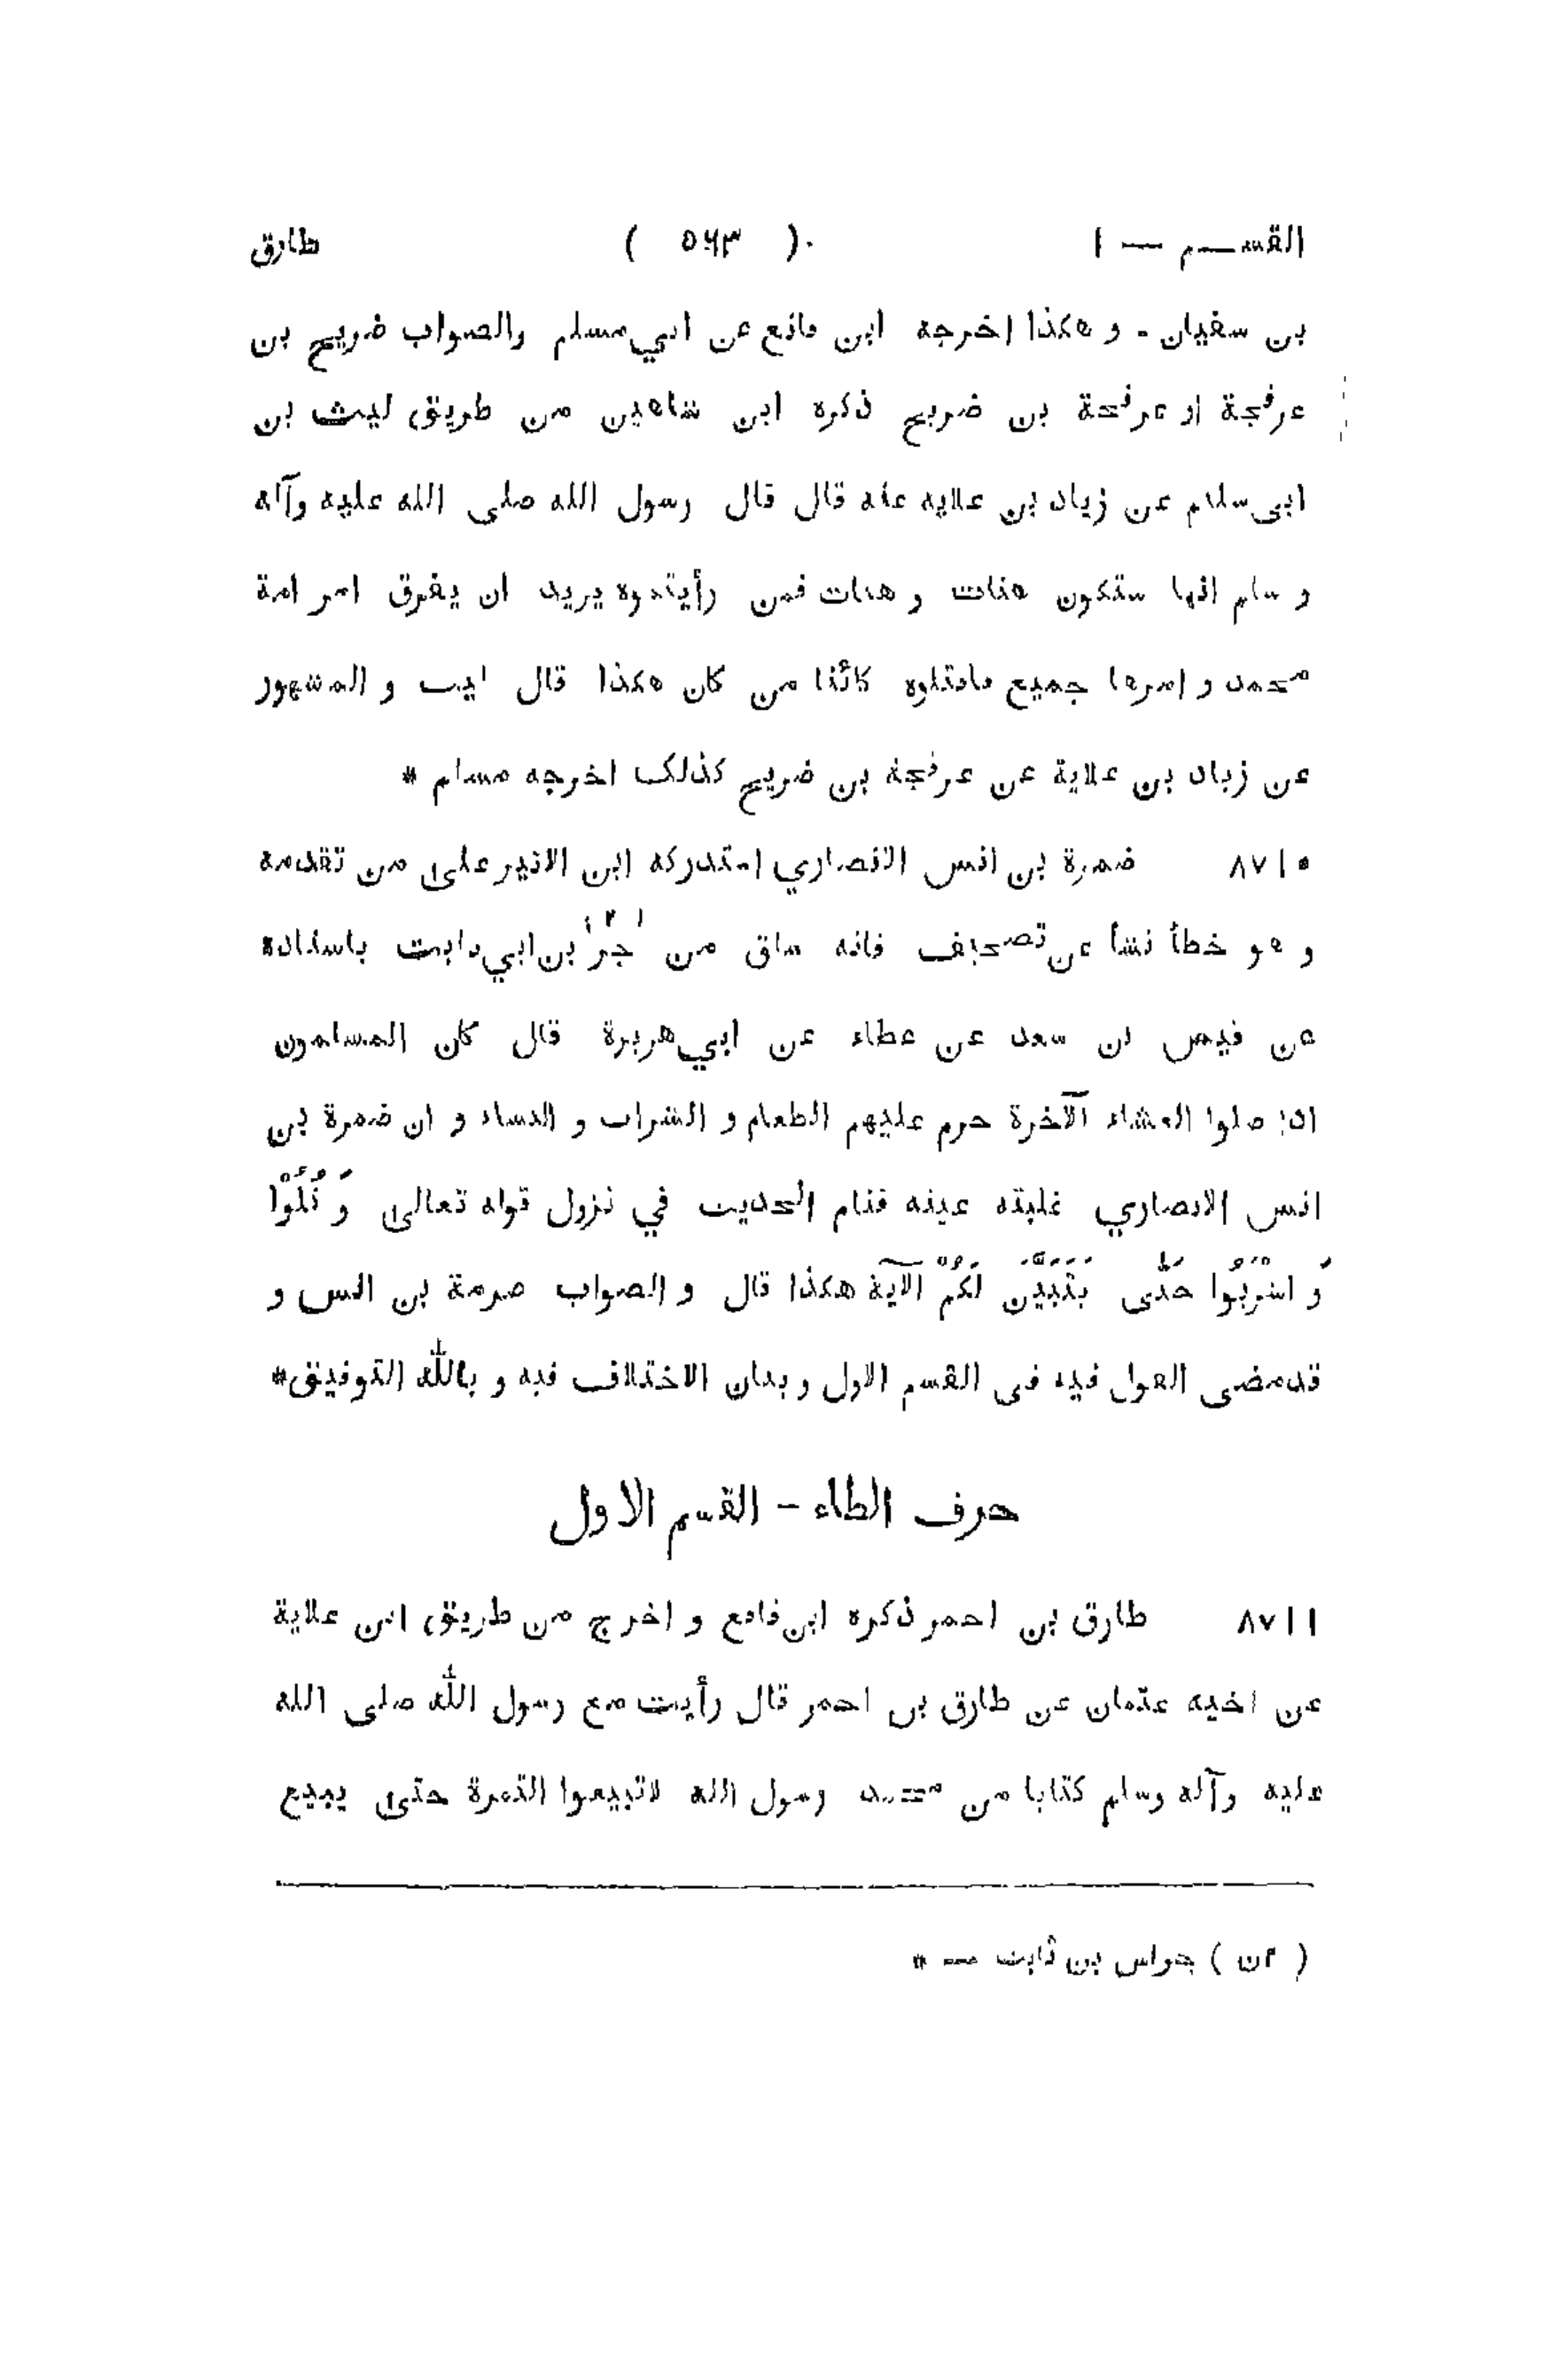 القســـم — ١ ( ٥٦٣ ) طارق
بن سفيان - و هكذا اخرجه ابن قانع عن ابي مسلم والصواب ضريح بن
عرفجة او عرفجة بن ضريح ذكره ابن شاهين من طريق ليث بن
ابي سليم عن زياد بن علاية عنه قال قال رسول الله صلى الله عليه وآله
و سلم انها ستكون هنات و هنات فمن رأيتموه يريد ان يفرق امر امة
محمد و امرها جميع فاقتلوه كائنا من كان هكذا قال ليث و المشهور
عن زياد بن علاية عن عرفجة بن ضريح كذلك اخرجه مسلم *
٨٧١٠ ضمرة بن انس الانصاري استدركه ابن الاثير على من تقدمه
و هو خطأ نشأ عن تصحيف فانه ساق من جز (٢) بن ابي ثابت باسناده
عن قيس بن سعد عن عطاء عن ابي هريرة قال كان المسلمون
اذا صلوا العشاء الآخرة حرم عليهم الطعام و الشراب و النساء و ان ضمرة بن
انس الانصاري غلبته عينه فنام الحديث في نزول قوله تعالى وَ كُلُوْا
وَ اشْرَبُوا حَتّٰى يَتَبَيَّنَ لَكُمْ الآية هكذا قال و الصواب صرمة بن انس و
قد مضى القول فيه في القسم الاول و بيان الاختلاف فيه و بالله التوفيق *
حرف الطاء - القسم الاول
٨٧١١ طارق بن احمر ذكره ابن قانع و اخرج من طريق ابن علاية
عن اخيه عثمان عن طارق بن احمر قال رأيت مع رسول الله صلى الله
عليه وآله وسلم كتابا من محمد رسول الله لاتبيعوا الثمرة حتى يينع
( ٢ن ) جراس بن ثابت — *